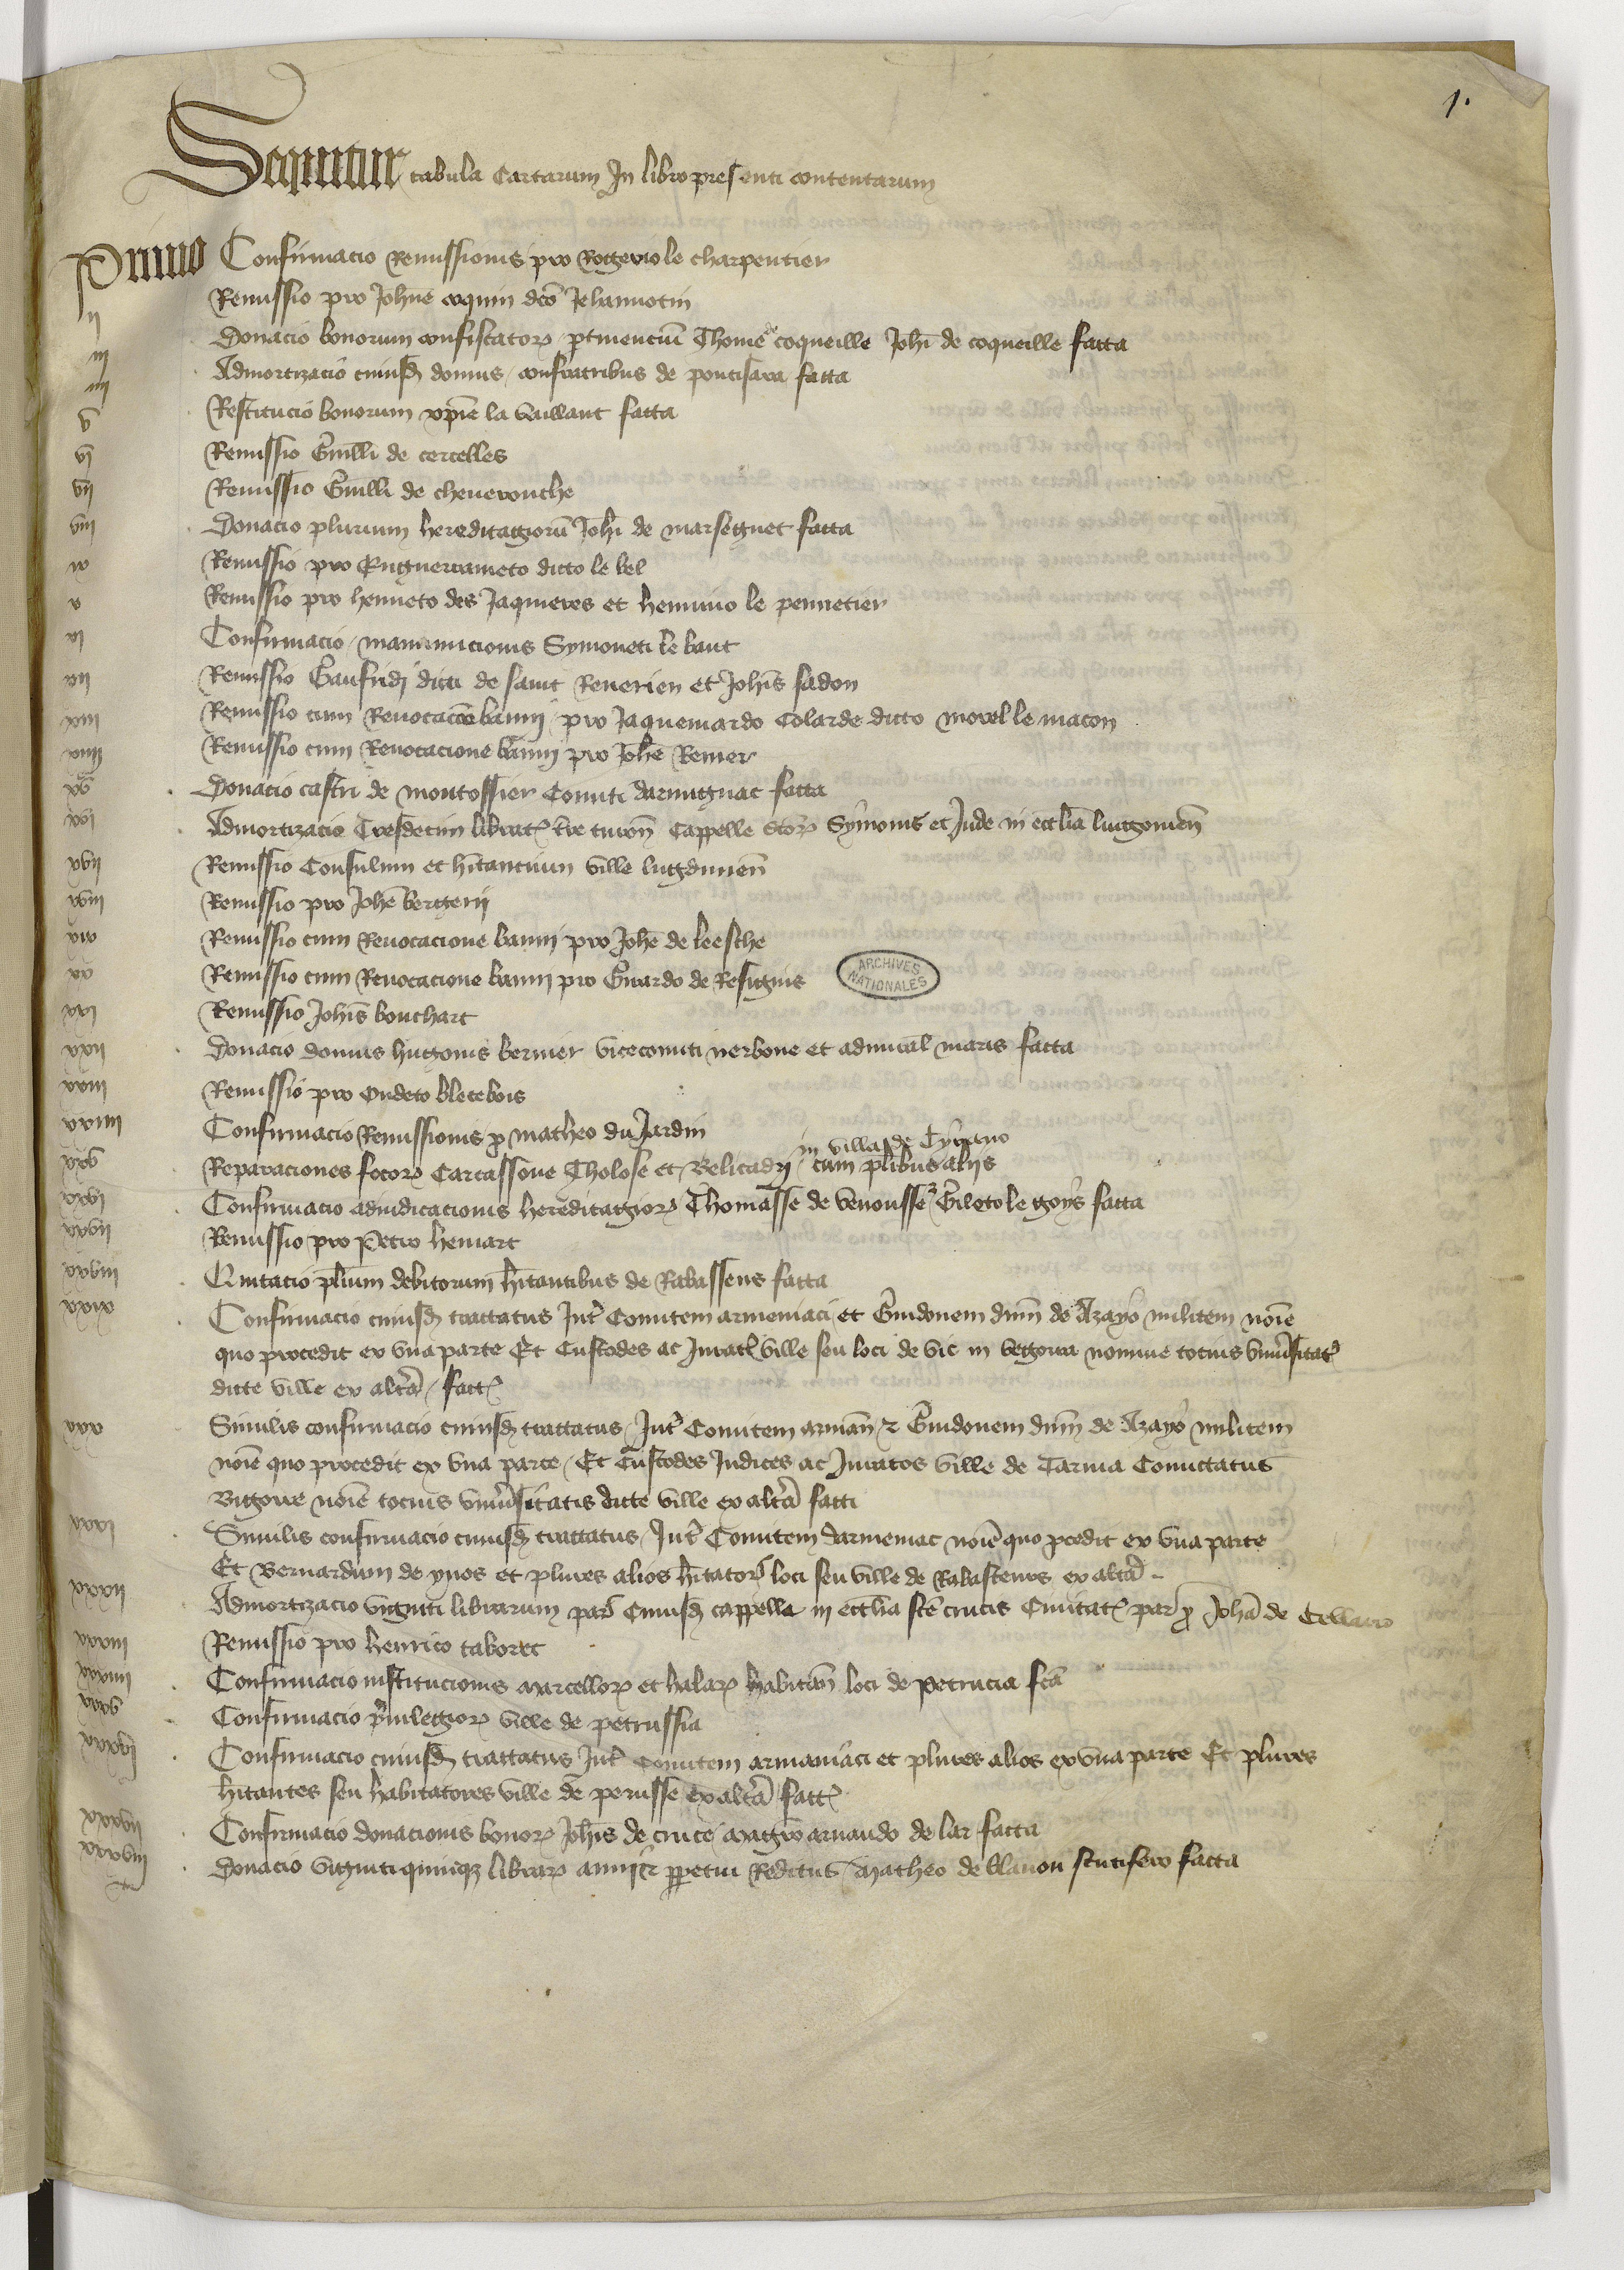 1.
Sequitur tabula Cartarum In libro presenti contentarum
Primo Confirmacio Remissionis pro Rogerio le charpentier
ij Remissio pro Johanne coquin dco Jehannotin
iij Donacio bonorum confiscator ptinenciu Thome de coqueille Johi de coqueille facta
iiij Admortizacio cuiusd domus confratribus de pontisara facta
v Restitucio bonorum xpine la vaillant facta
vj Remissio Guilli de cercelles
vij Remissio Guilli de cheverouche
viij Donacio plurium hereditagioru Johi de marseguet facta
ix Remissio pro Enguerranneto dicto le bel
x Remissio pro henneto des Jaquieres et hennino le pennetier
xj Confirmacio manumicionis Symoneti le baut
xij Remissio Gaufridi dicti de saint Reverien et Johis sadon
xiij Remissio cum Revocacoe banni pro Jaquemardo Colarde dicto morel le macon
xiiij Remissio cum Revocacione banni pro Johe Renier
xv Donacio castri de montossier Comiti darmignac facta
xvj Admortizacio Tresdecim librat tre turon Cappelle stor Symonis et Jude in ecclia lingonien
xvij Remissio Consulum et hitantium ville lugdunen
xviij Remissio pro Johe bergerii
xix Remissio cum Revocacione banni pro Johe de leesche
xx Remissio cum Revocacione banni pro Girardo de Resignis
ARCHIVES NATIONALES
xxj Remissio Johis bouchart
xxij Donacio domus hugonis bernier vicecomiti nerbone et admiral maris facta
xxiij Remissio pro Oudeto blecebois
xxiiij Confirmacio Remissionis p matheo du Jardin
in villa de Cynano
xxv Reparaciones focor Carcassone Tholose et Belicadri cum plibus aliis
xxvj Confirmacio adiudicacionis hereditagior Thomasse de venousse Giloto le goys facta
xxvij Remissio pro Petro hemart
xxviij Quitacio plium debitorum hitantibus de Rabassens facta
xxix Confirmacio cuiusd tractatus Int Comitem armeniaci et Guidonem dnm de Azayo militem noie
quo procedit ex una parte Et Custodes ac Jurat ville seu loci de vic in begorra nomine tocius universitat
dicte ville ex altera fact
xxx Similis confirmacio cuiusd tractatus Int Comitem arman et Guidonem dnm de Azayo militem
noie quo procedit ex una parte Et Custodes Judices ac Juratos ville de Tarvia Comittatus
Bigorre noie tocius universitatis dicte ville ex altera facti
xxxj Similis confirmacio cuiusd tractatus Int Comitem darmeniac noie quo pcedit ex una parte
Et Bernardum de ynos et plures alios hitator loci seu ville de Rabastenxs ex altera
xxxij Admortizacio viginti librarum par Cuiusd cappelle in ecclia scte crucis Civitat par p Joha de Cellario
xxxiij Remissio pro henrico taboret
xxxiiij Confirmacio institucionis marcellor et halar habitan loci de petrucia fca
xxxv Confirmacio privilegior ville de petrussia
xxxvj Confirmacio cuiusd tractatus Int Comitem armaniaci et plures alios ex una parte Et plures
hitantes seu habitatores ville de perusse ex altera fact
xxxvij Confirmacio donacionis bonor Johis de cruce magro arnaudo de lar facta
xxxviij Donacio viginti quinq librar annui et ppetui Redditus matheo de llanon scutifero facta